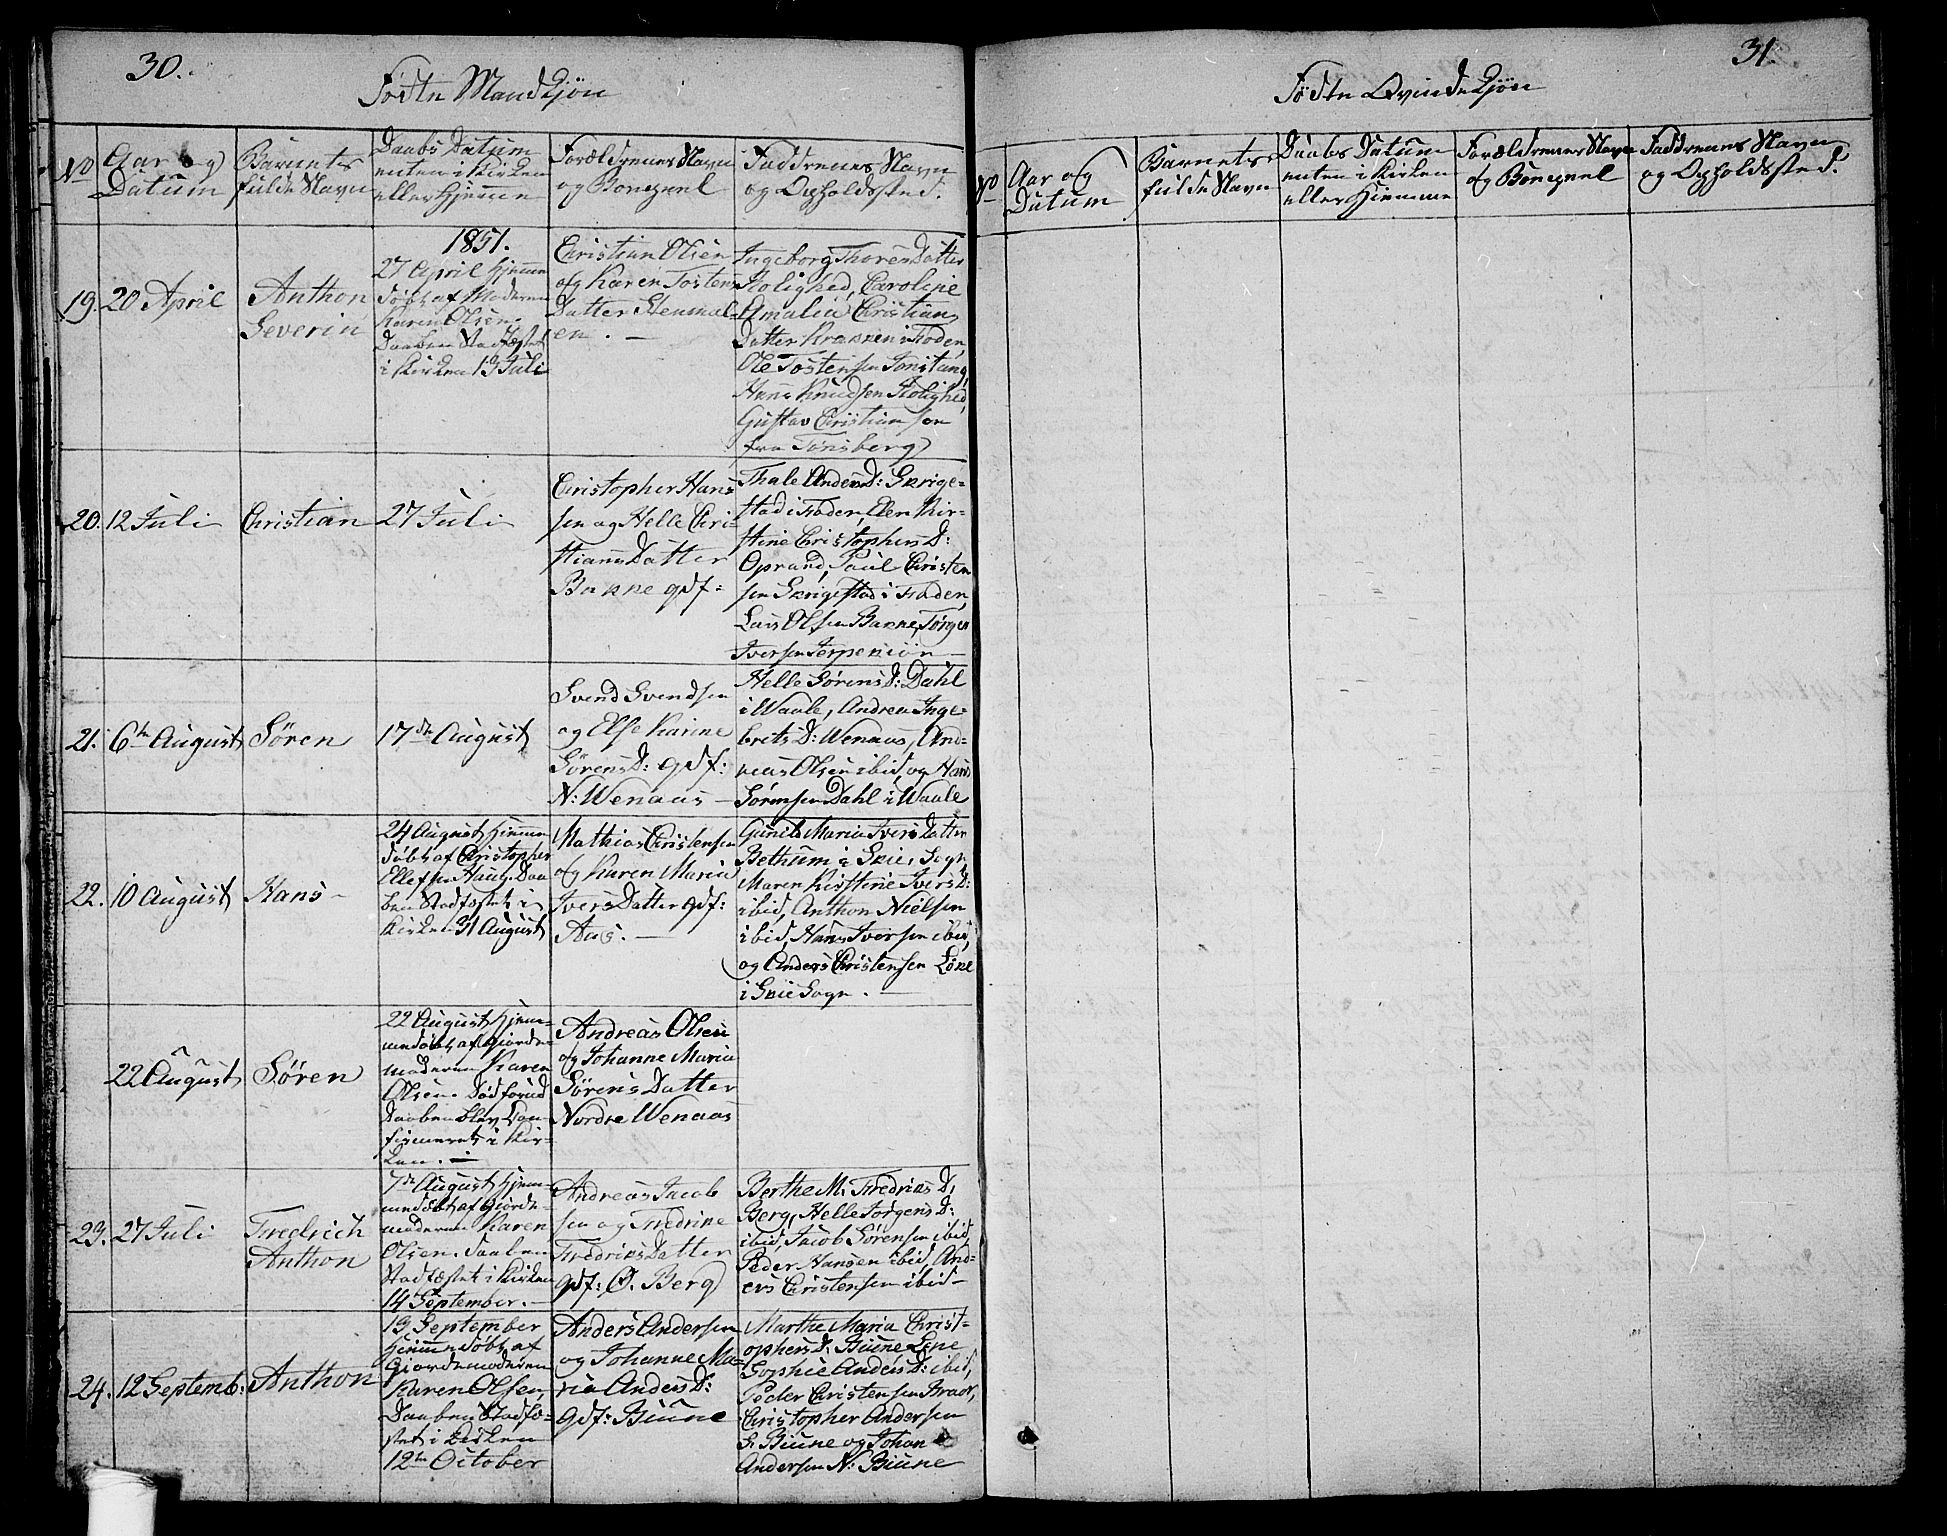 30.
Födte Mandkjön
No
Aar og
Datum
Barnets
fulde Navn
Daabs Datum
enten i Kirken
eller Hjemme
Forældrenes Navn
og Bopæl
Faddrenes Navn
og Opholdssted.
19.
20 April
Anthon
Severin
1851.
27 April Hjemme
döbt af Moderen
Karen Olsen.
Daaben Stadfæstet
i Kirken 19 Juli
Christian Olsen
og Karen Tostens
Datter Stensnæs
en. –
Ingeborg Thores Datter
Rolighed, Caroline
Amalia Christians
Datter Krakken i Floden,
Ole Tostensen
Hans Knudsen Rolighed,
Gustav Christiansen
fra Tönsberg
20.
12 Juli
Christian
27 Juli
Christopher Hans
sen og Helle Chri-
stians Datter
Bakke gdf:
Thale Anders D: Skrige-
stad i Floden, Elen Kir-
stine Christophers D:
Oprand, Paul Christen
sen Skrigestad i Floden,
Lars Olsen Bakke, Jörgen
Iversen
21.
6te August
Sören
17de August
Svend Svendsen
og Else Karine
Sörens D: gdf:
N: Wenaas –
Helle Sörens D: Dahl
i Waale, Andrea Inge-
brets D: Wenaas, And-
reas Olsen ibid, og Hans
Sörensen Dahl i Waale
22.
10 August
Hans –
24 August Hjemme
döbt af Christopher
Ellefsen Haug. Daa
ben Stadfæstet i
Kirken 31 August
Mathias Christensen
og Karen Maria
Ivers Datter gdf:
Aas. –
Gunild Maria Ivers Datter
Bethum i Skie, Sogn
Maren Kirstine Ivers D:
ibid, Anthon Nielsen
ibid, Hans Iversen ibid,
og Anders Christensen Löke
i Skie Sogn. –
22 August
Sören
22 August Hjem-
medöbt af Giorde-
moderen Karen
Olsen. Död forud
Daaben blev Con
firmeret i Kir-
ken. –
Andreas Olsen
og Johanne Maria
Sörens Datter
Nordre Wenaas
23.
27 Juli
Fredrich
Anthon
7de August Hjem-
medöbt af Giorde-
moderen Karen
Olsen. Daaben
Stadfæstet i Kirken
14 September. –
Andreas Jacob
sen og Fredrikke
Fredriks Datter
gdf: Ö. Berg
Berthe M. Fredriks D,
Berg, Helle Jörgens D:
ibid, Jacob Sörensen ibid,
Peder Hansen ibid, And-
ers Christensen ibid –
24.
12 Septemb:
Anthon
19 September
Hjemmedöbt af
Giordemoderen
Karen Olsen,
Daaben Stadfæ-
stet i Kirken
12te October
Anders Andersen
og Johanne Ma-
ria Anders D:
gdf: Biune
Marthe Maria Christ-
ophers D. Biune Lene
Sophie Anders D: ibid,
Peder Christensen
Christopher Andersen
S. Biune og Johan
Andersen N: Biune
31.
Födte Qvindekjön
No
Aar og
Datum
Barnets
fulde Navn
Daabs Datum
enten i Kirken
eller Hiemme
Forældrenes Navn
og Bopæl
Faddrenes Navn
og Opholdssted.